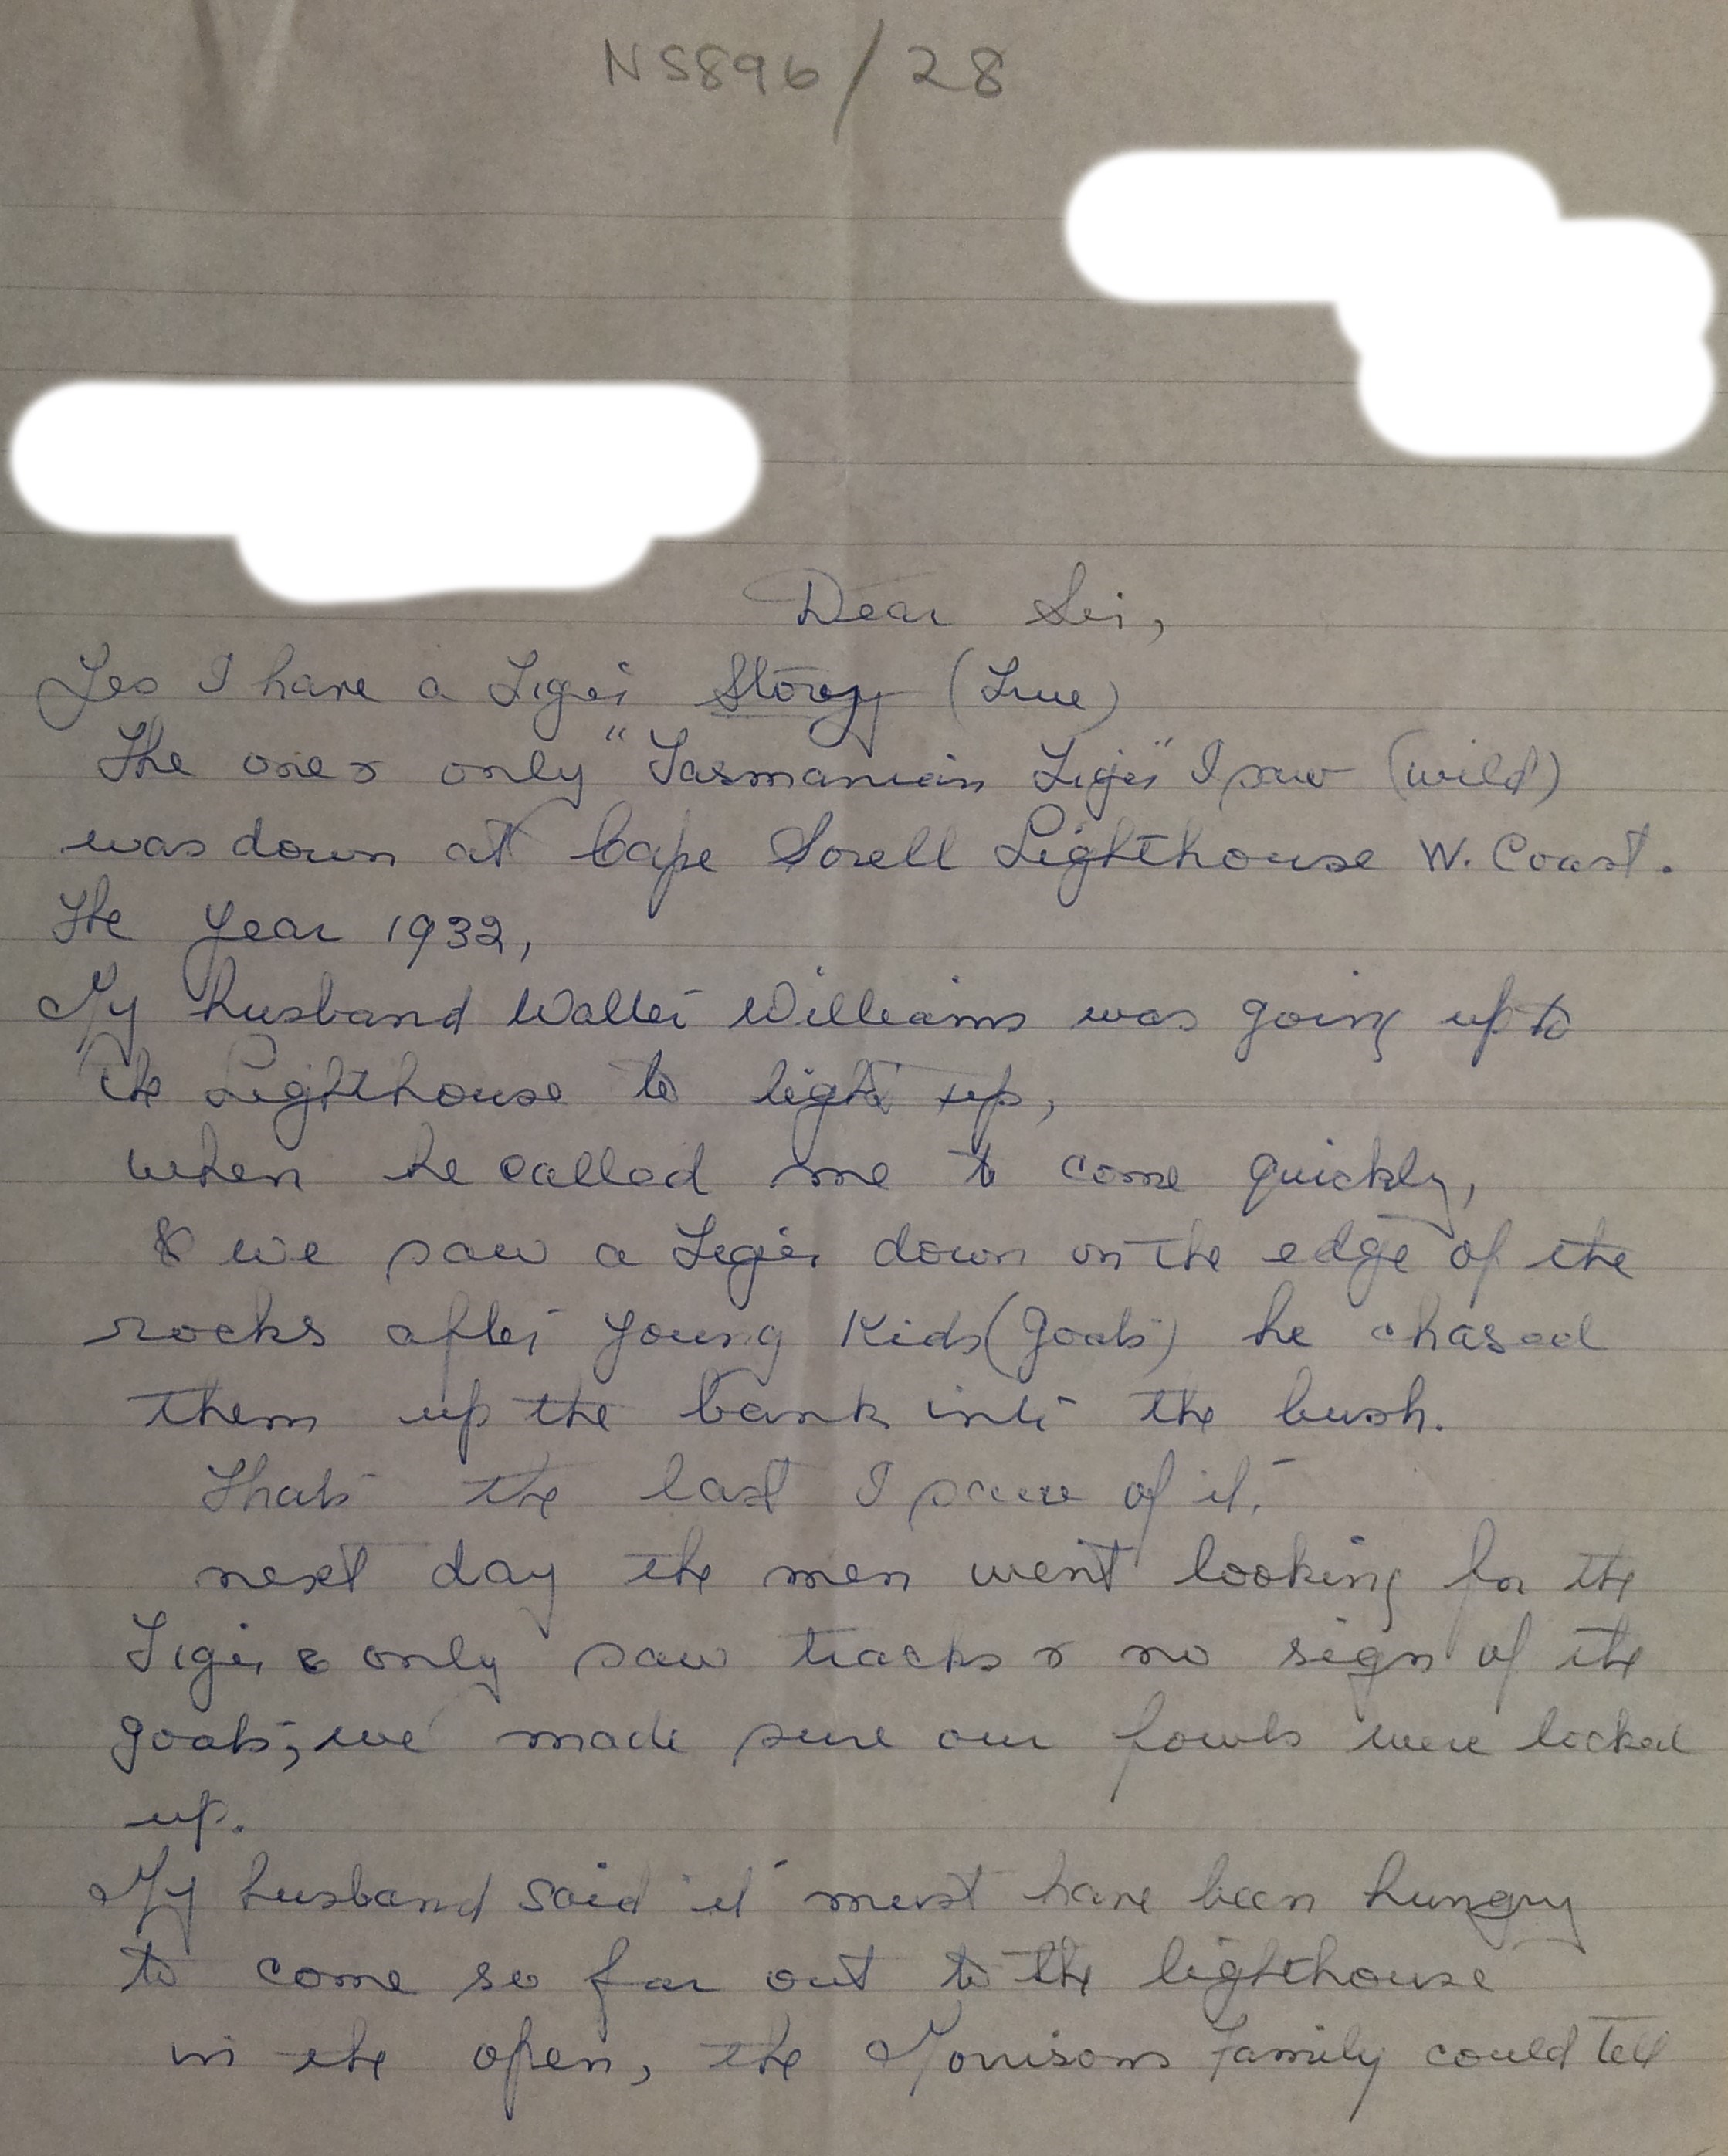 NS896/28
Dear Sir,
Yes I have a Tiger Storey (True)
The one & only "Tasmanian Tiger" I saw (wild)
was down at Cape Sorell Lighthouse W. Coast.
The year 1932,
My husband Walter Williams was going up to
the Lighthouse to light up,
when he called me to come quickly,
& we saw a Tiger down on the edge of the
rocks after young Kids (goats) he chased
them up the bank into the bush.
Thats the last I saw of it.
next day the men went looking for the
Tiger & only saw tracks & no sign of the
goats, we made sure our fowls were locked
up.
My husband said it must have been hungry
to come so far out to the lighthouse
in the open, the Morrisons family could tell